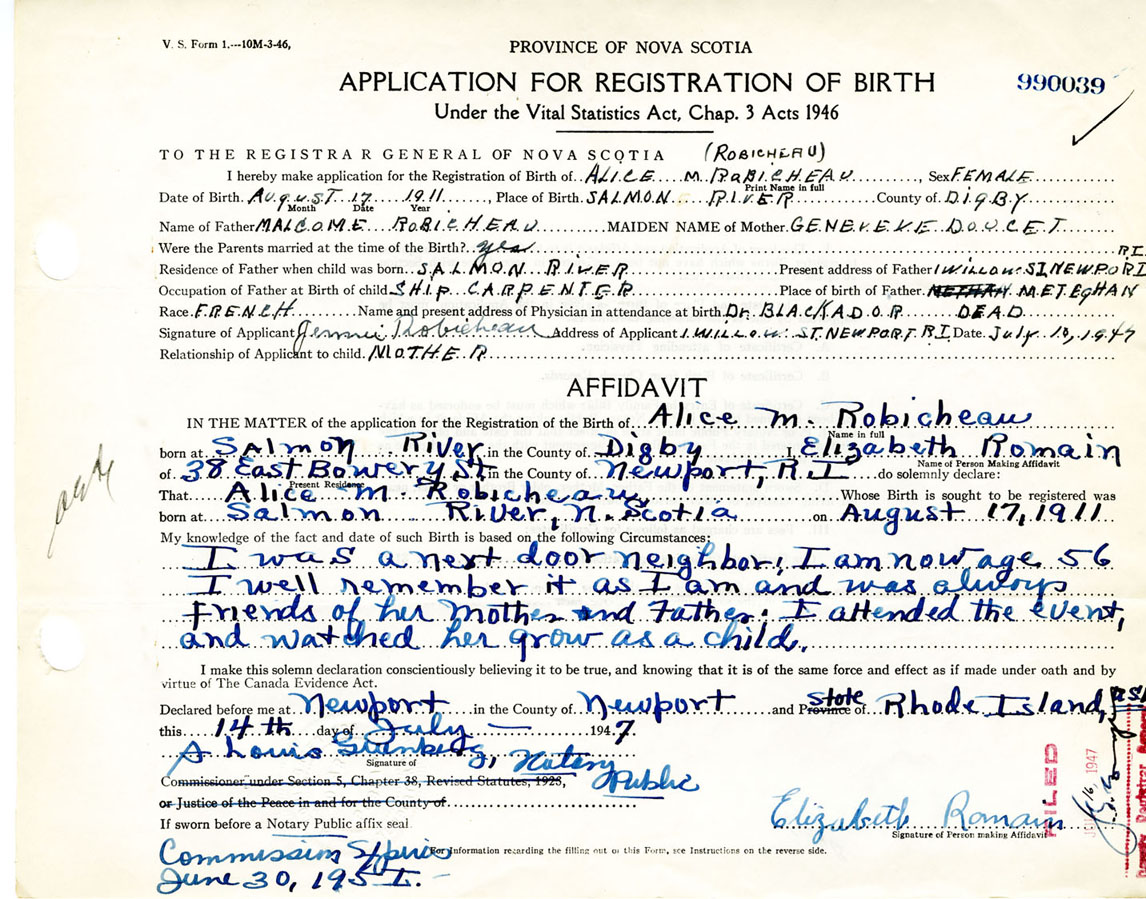 V. S. Form 1.---10M-3-46,
PROVINCE OF NOVA SCOTIA
APPLICATION FOR REGISTRATION OF BIRTH
990039
Under the Vital Statistics Act, Chap. 3 Acts 1946
TO THE REGISTRAR GENERAL OF NOVA SCOTIA (ROBICHEAU)
I hereby make application for the Registration of Birth of ALICE M. ROBICHEAU, Sex FEMALE
Print Name in full
Date of Birth. AUGUST 17 1911, Place of Birth. SALMON RIVER County of DIGBY
Month Date Year
Name of Father MALCOME ROBICHEAU MAIDEN NAME of Mother. GENEVEVE DOUCET
Were the Parents married at the time of the Birth? yes
R.I.
Residence of Father when child was born. SALMON RIVER Present address of Father 1 WILLOW ST NEWPORT
Occupation of Father at Birth of child SHIP CARPENTER Place of birth of Father. METEGHAN
Race. FRENCH Name and present address of Physician in attendance at birth. Dr. BLACKADOR DEAD
Signature of Applicant Jennie Robicheau Address of Applicant 1 WILLOW ST. NEWPORT R.I. Date. July 10, 1947
Relationship of Applicant to child. MOTHER
AFFIDAVIT
IN THE MATTER of the application for the Registration of the Birth of Alice M. Robicheau
Name in full
born at Salmon River in the County of Digby I, Elizabeth Romain
Name of Person Making Affidavit
of 38 East Bowery St. in the County of Newport, R.I. do solemnly declare:
Present Residence
That Alice M. Robicheau Whose Birth is sought to be registered was
born at Salmon River, N. Scotia on August 17, 1911
My knowledge of the fact and date of such Birth is based on the following Circumstances:
I was a next door neighbor; I am now age 56
I well remember it as I am and was always
friends of her Mother and Father; I attended the event,
and watched her grow as a child.
I make this solemn declaration conscientiously believing it to be true, and knowing that it is of the same force and effect as if made under oath and by
virtue of The Canada Evidence Act.
Declared before me at Newport in the County of Newport and Province State of Rhode Island,
this 14th day of July 1947
A Louis, Notary Public
Signature of
Commissioner under Section 5, Chapter 38, Revised Statutes, 1923,
or Justice of the Peace in and for the County of
If sworn before a Notary Public affix seal
Elizabeth Romain
Signature of Person making Affidavit
For Information regarding the filling out of this Form, see Instructions on the reverse side.
Commission Expires
June 30, 1951.
FILED
16, 1947